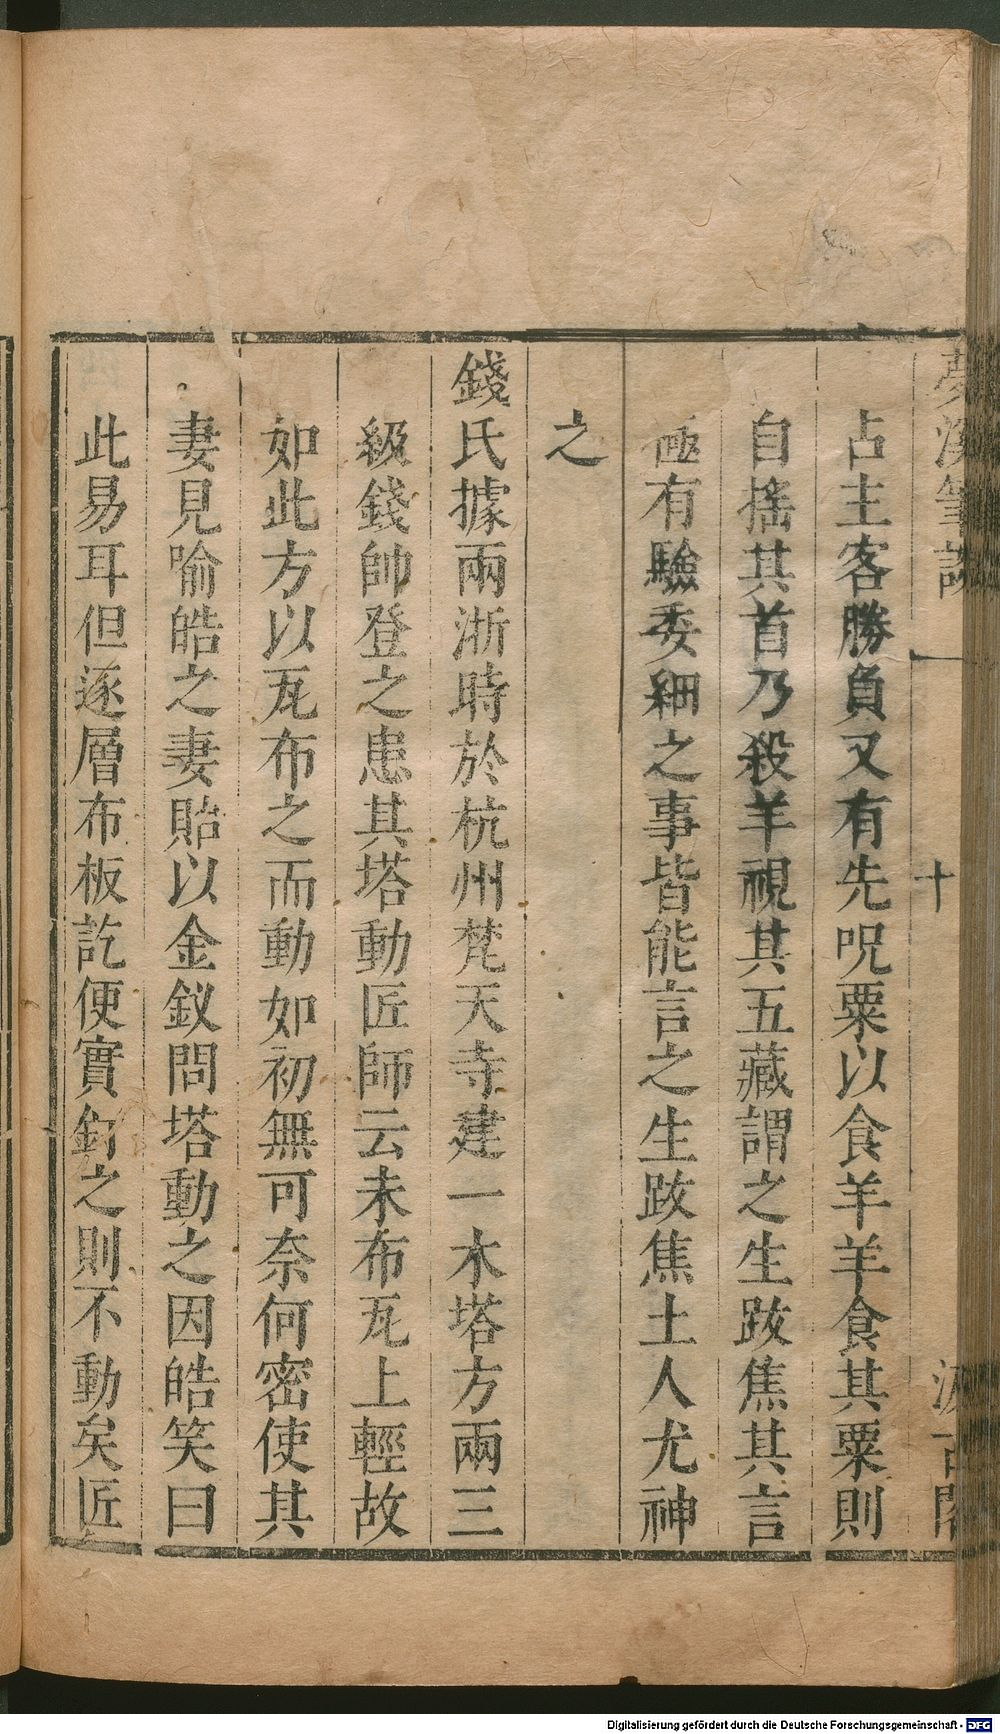 夢溪筆談
十
汲古閣
占主客勝負又有先呪粟以食羊羊食其粟則
自搖其首乃殺羊視其五藏謂之生跋焦其言
極有驗委細之事皆能言之生跋焦土人尤神
之
錢氏據兩浙時於杭州梵天寺建一木塔方兩三
級錢帥登之患其塔動匠師云未布瓦上輕故
如此方以瓦布之而動如初無可奈何密使其
妻見喻皓之妻貽以金釵問塔動之因皓笑曰
此易耳但逐層布板訖便實釘之則不動矣匠
Digitalisierung gefördert durch die Deutsche Forschungsgemeinschaft - DFG